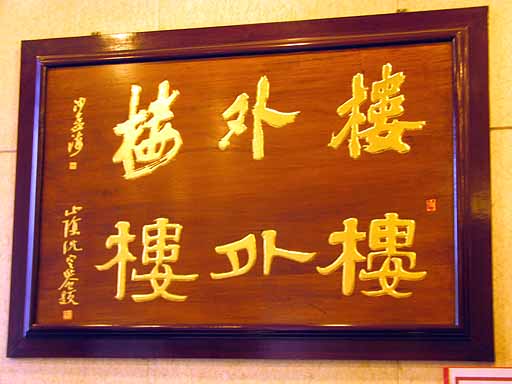 樓外楼
沙孟海
樓外樓
山陰沈定庵題